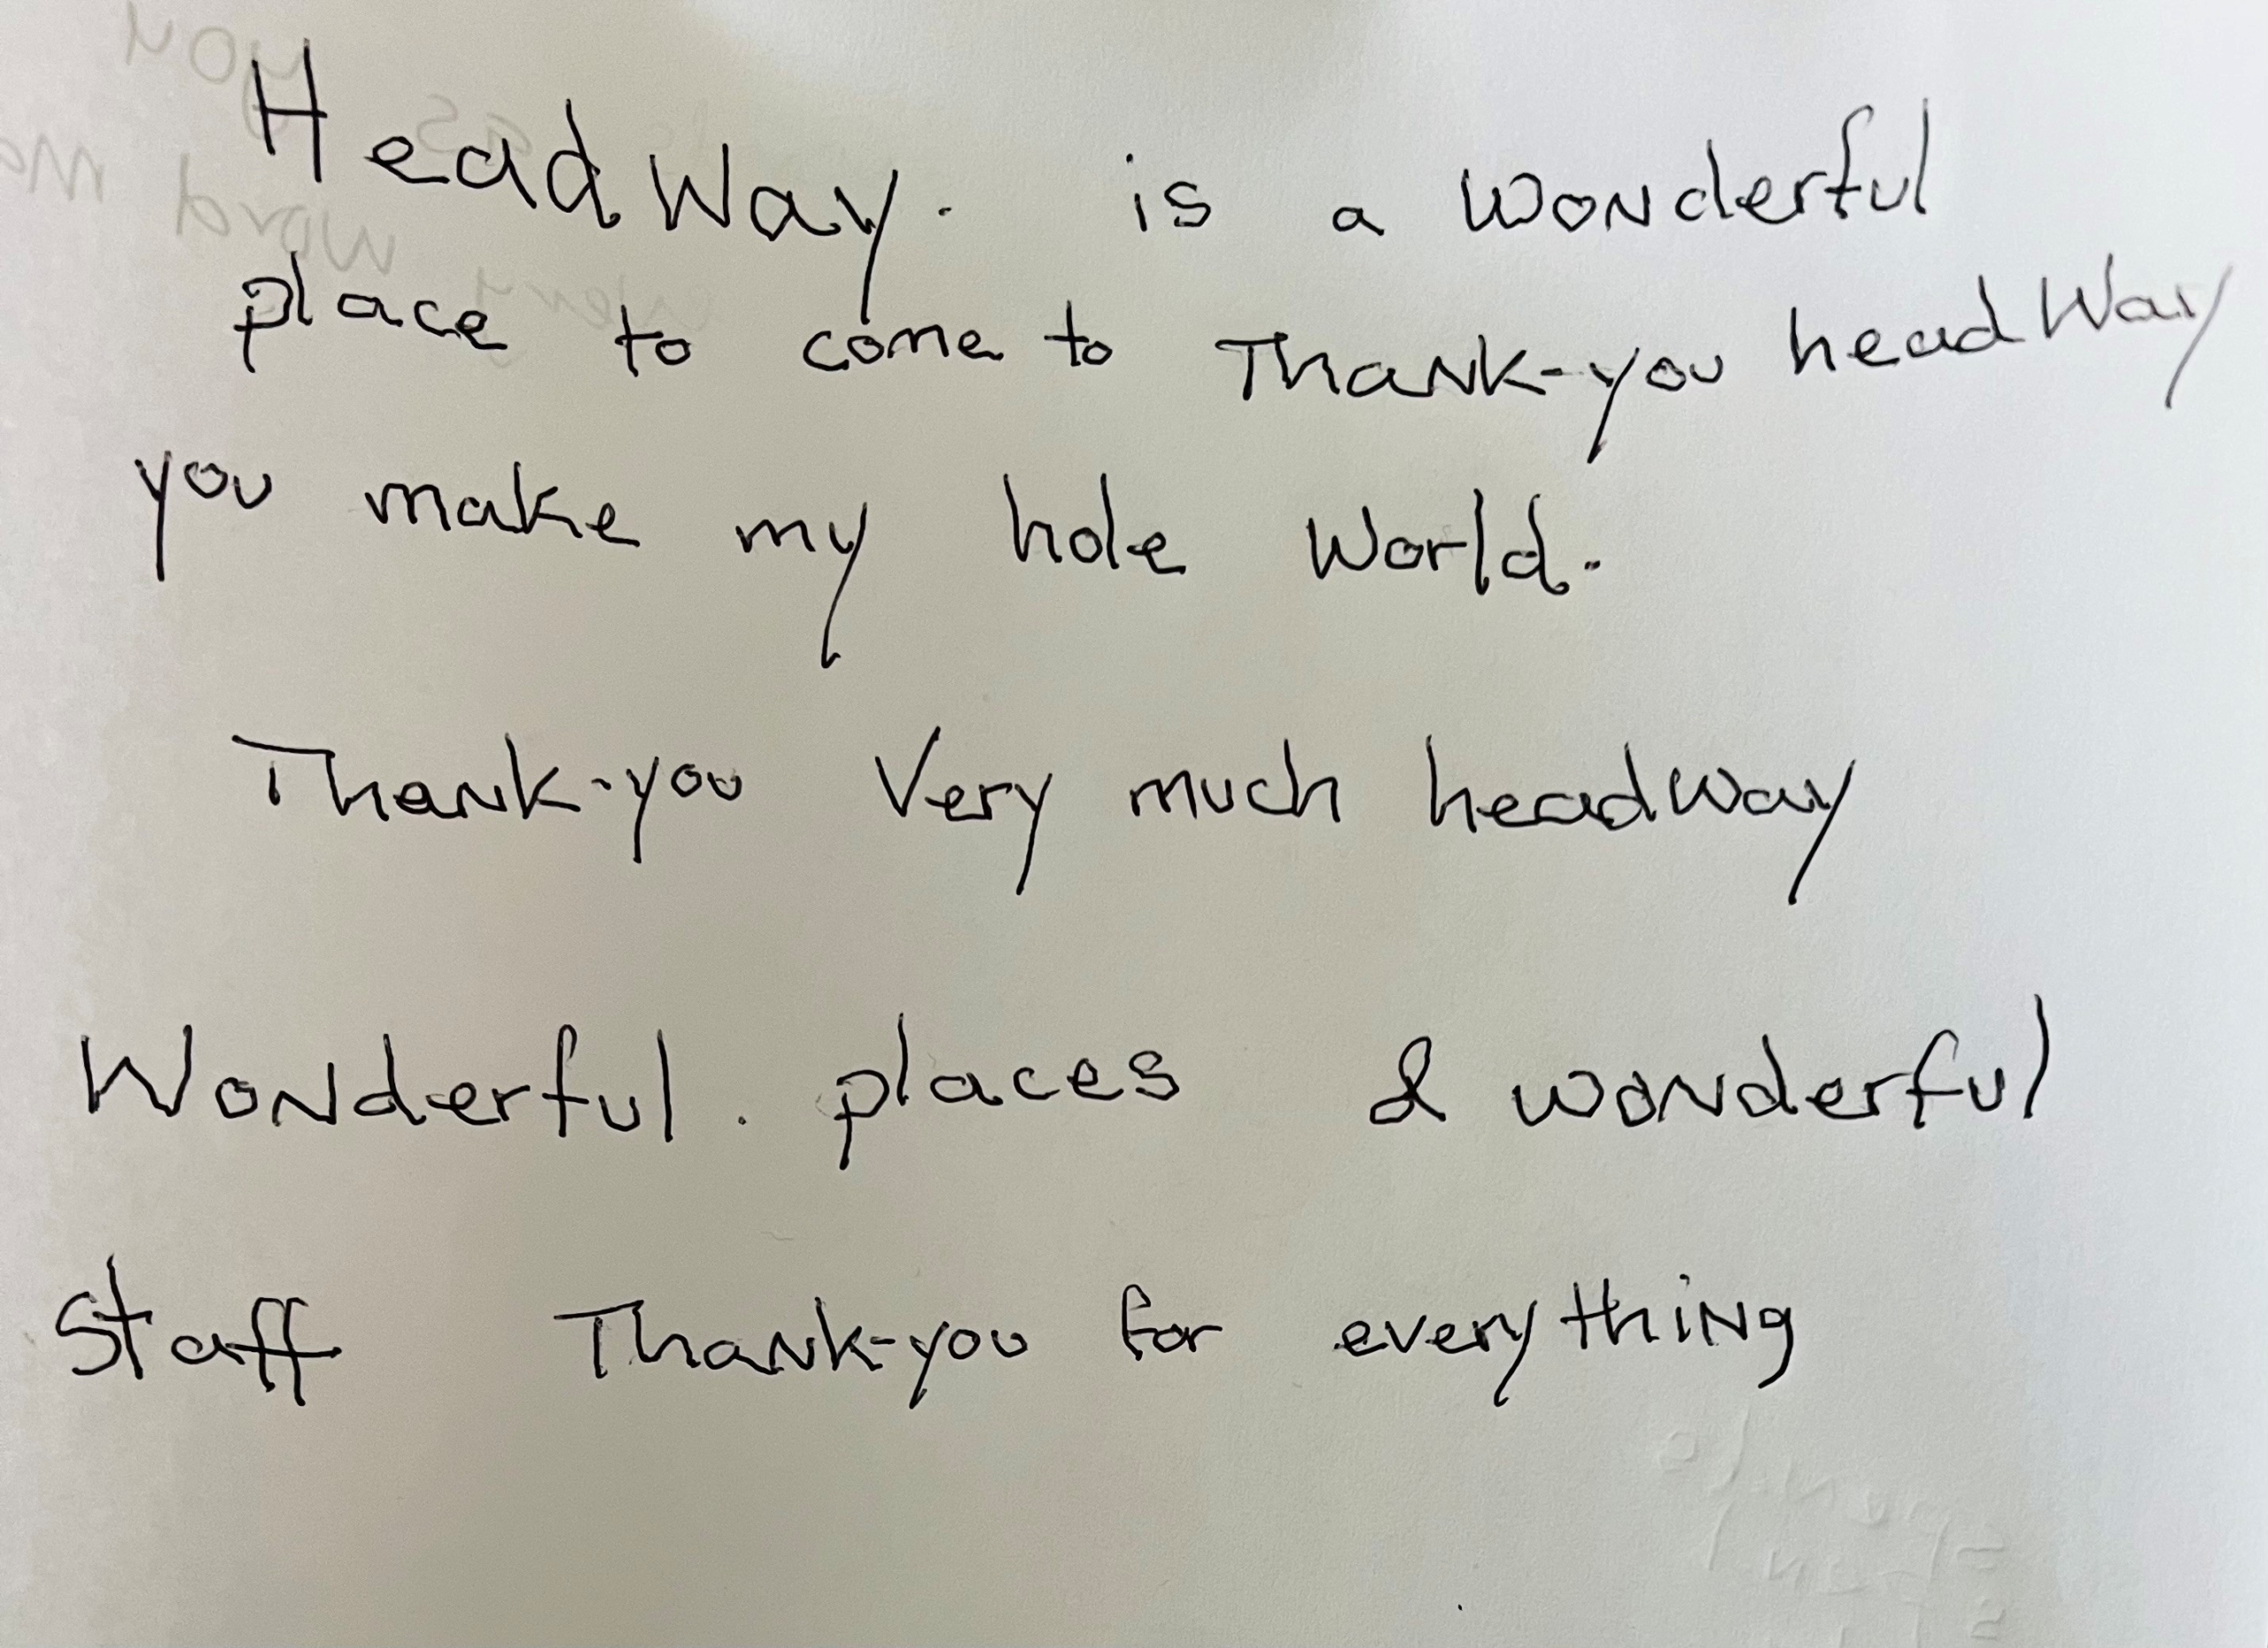 HeadWay. is a wonderful
place to come to Thank-you headWay
you make my hole World.
Thank-you Very much headway
Wonderful. places & wonderful
Staff Thank-you for everything